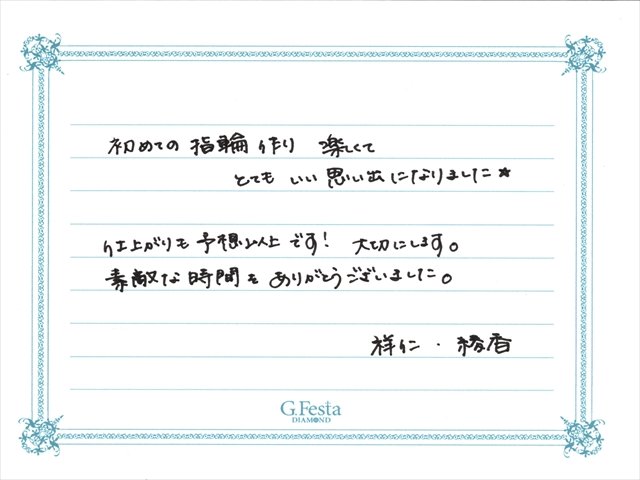 初めての指輪作り 楽しくて
とても いい 思い出になりました★
仕上がりも予想以上です! 大切にします。
素敵な時間をありがとうございました。
祥仁・綾香
G.Festa
DIAMOND